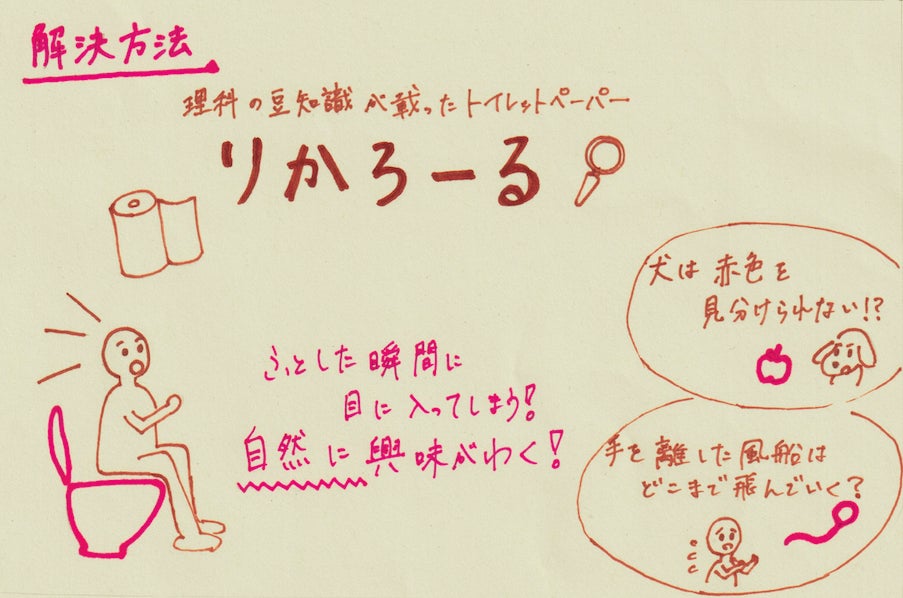 解決方法
理科の豆知識が載ったトイレットペーパー
りかろーる
犬は赤色を
見分けられない!?
ふとした瞬間に
目に入ってしまう!
自然に興味がわく!
手を離した風船は
どこまで飛んでいく?